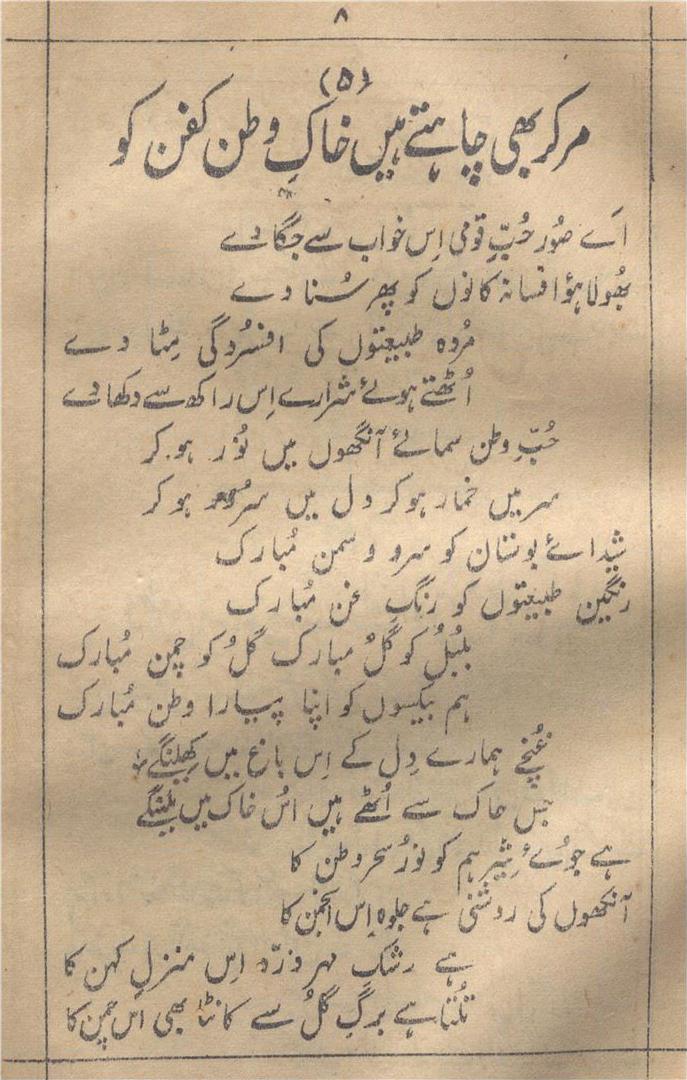 ۸
(۵)
مر کر بھی چاہتے ہیں خاکِ وطن کفن کو
اَے صُور حُبِّ قومی اِس خواب سے جگا دے
بھُولا ہؤا فسانہ کانوں کو پھر سُنا دے
مُردہ طبیعتوں کی افسُردگی مِٹا دے
اُٹھتے ہوئے شرارے اِس راکھ سے دکھا دے
حُبِّ وطن سمائے آنکھوں میں نُور ہو کر
سر میں خمار ہو کر دل میں سرُور ہو کر
شیدائے بوستان کو سرو و سمن مُبارک
رنگین طبیعتوں کو رنگِ سخن مُبارک
بلبُل کو گلُ مبارک گلُ کو چمن مُبارک
ہم بیکسوں کو اپنا پیارا وطن مُبارک
غُنچے ہمارے دِل کے اِس باغ میں کھِلینگے
جس خاک سے اُٹھے ہیں اُس خاک میں ملینگے
ہے جوُئے شِیر ہم کو نوُر سحر وطن کا
آنکھوں کی روشنی ہے جلوہ اِس انجمن کا
ہے رشکِ مہر ذرّہ اِس منزلِ کہن کا
تُلتا ہے برگِ گلُ سے کانٹا بھی اس چمن کا